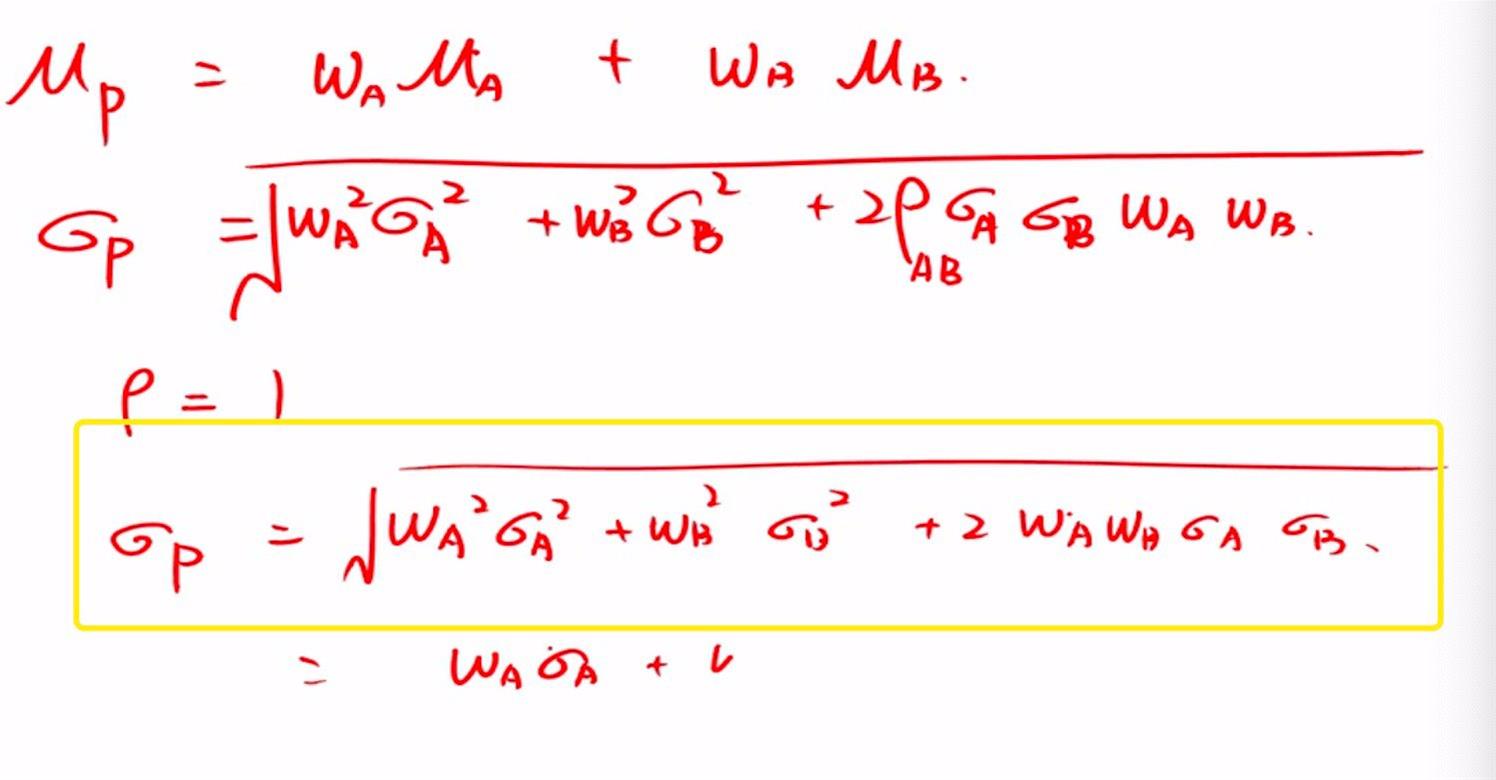 μ_P = w_A μ_A + w_B μ_B.
σ_P = √(w_A² σ_A² + w_B² σ_B² + 2ρ_AB σ_A σ_B w_A w_B.)
ρ = 1
σ_P = √(w_A² σ_A² + w_B² σ_B² + 2 w_A w_B σ_A σ_B.)
= w_A σ_A +